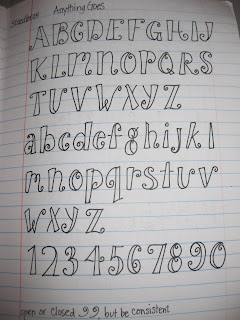 Anything Goes
ABCDEFGHIJ
KLMNOPQRS
TUVWXYZ
abcdefghijkl
mnopqrstuv
wxyz
1234567890
open or closed , but be consistent